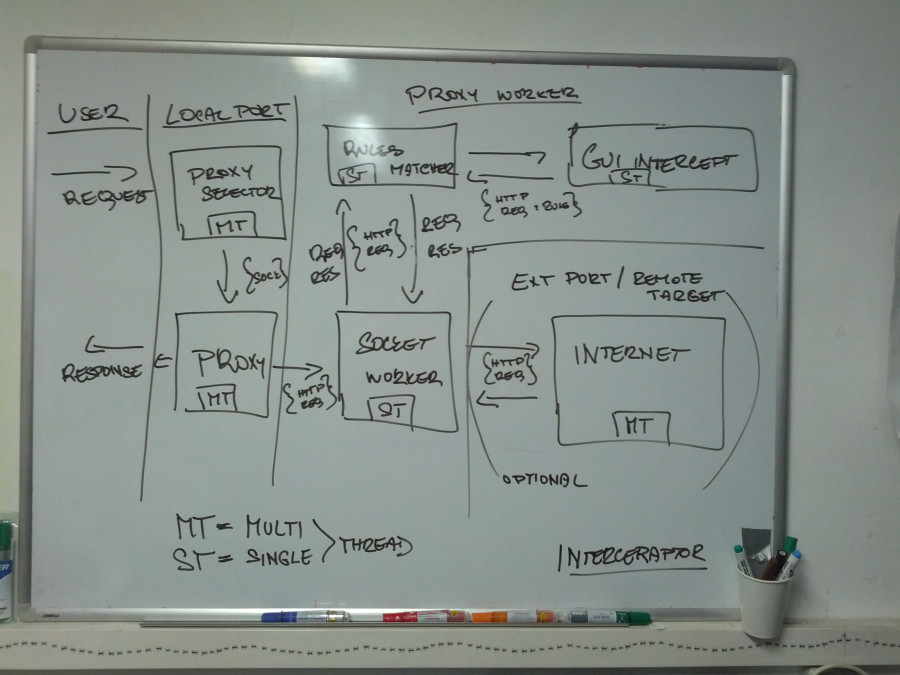 USER
LOCAL PORT
PROXY WORKER
REQUEST
PROXY
SELECTOR
MT
RULES
MATCHER
ST
GUI INTERCEPT
ST
{HTTP
REQ + RULE}
{SOCK}
REQ
RES
{HTTP
REQ}
REQ
RES
EXT PORT / REMOTE
TARGET
RESPONSE
PROXY
MT
{HTTP
REQ}
SOCKET
WORKER
ST
{HTTP
REQ}
INTERNET
MT
OPTIONAL
MT = MULTI
ST = SINGLE
THREAD
INTERCERAPTOR